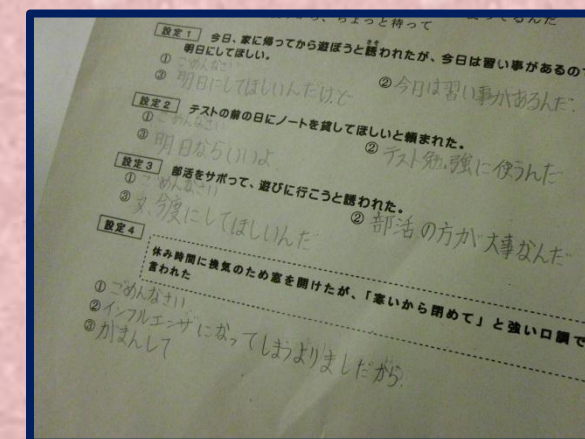 ちょっと待って
設定1 今日、家に帰ってから遊ぼうと誘われたが、今日は習い事があるので
明日にしてほしい。
① ごめんなさい ② 今日は習い事があるんだ。
③ 明日にしてほしいんだけど
設定2 テストの前の日にノートを貸してほしいと頼まれた。
① ごめんなさい ② テスト勉強に使うんだ
③ 明日ならいいよ
設定3 部活をサボって、遊びに行こうと誘われた。
① ごめんなさい ② 部活の方が大事なんだ
③ 又、今度にしてほしいんだ
設定4
休み時間に換気のため窓を開けたが、「寒いから閉めて」と強い口調で
言われた
① ごめんなさい
② インフルエンザになってしまうよりましだから
③ がまんして